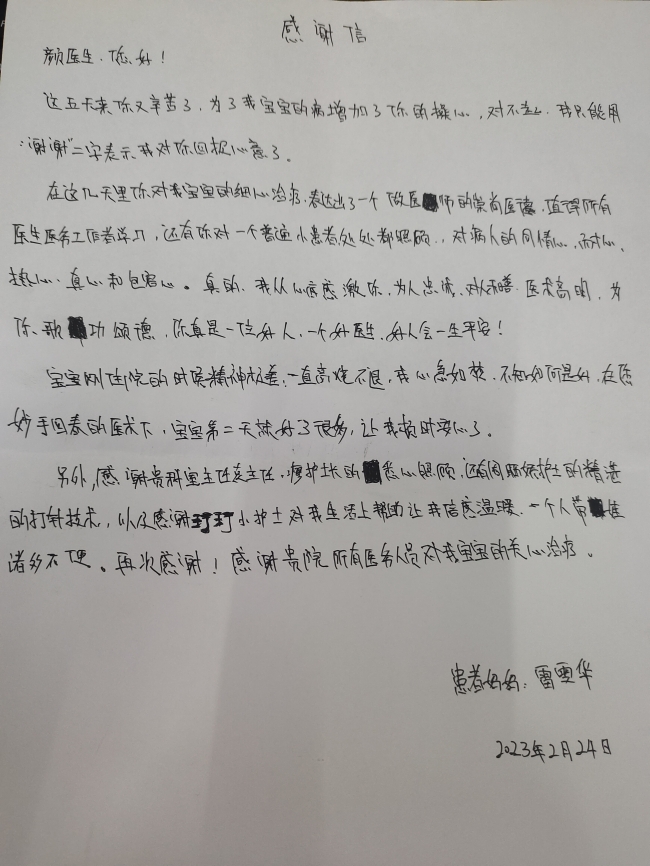 感谢信
颜医生.您好!
这五天来你又辛苦了,为了我宝宝的病增加了你的操心,对不起,我只能用
"谢谢"二字表示我对你回报心意了。
在这几天里你对我宝宝的细心治疗,表达出了一个做医师的崇尚医德,值得所有
医生医务工作者学习,还有你对一个普通小患者处处都照顾..对病人的同情心,耐心、
热心.真心和包容心。真的,我从心底感激你,为人忠诚,对人和善.医术高明,为
你歌功颂德,你真是一位好人,一个好医生,好人会一生平安!
宝宝刚住院的时候精神极差,一直高烧不退,我心急如焚,不知如何是好,在您
妙手回春的医术下,宝宝第二天就好了很多,让我顿时安心了。
另外,感谢贵科室主任 主任,廖护士长的悉心照顾,还有周 护士的精湛
的打针技术,以及感谢玎玎小护士对我生活上帮助让我倍感温暖,一个人带
诸多不便。再次感谢!感谢贵院所有医务人员对我宝宝的关心治疗。
患者妈妈:雷雪华
2023年2月24日